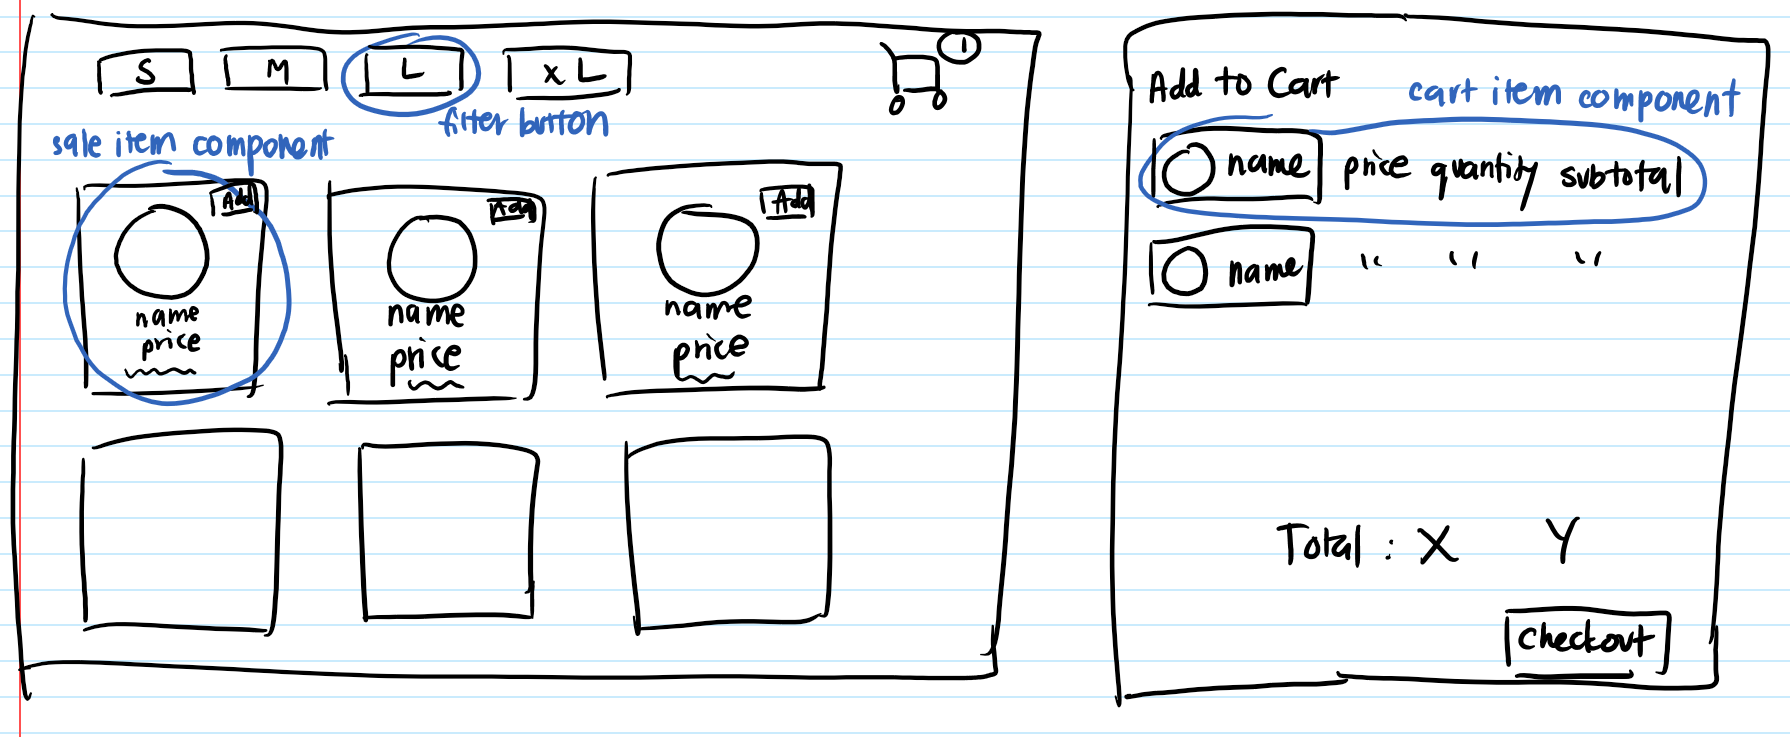 S M L XL 1
filter button
sale item component
Add Add Add
name name name
price price price
Add to Cart
cart item component
name price quantity subtotal
name " " "
Total : X Y
checkout